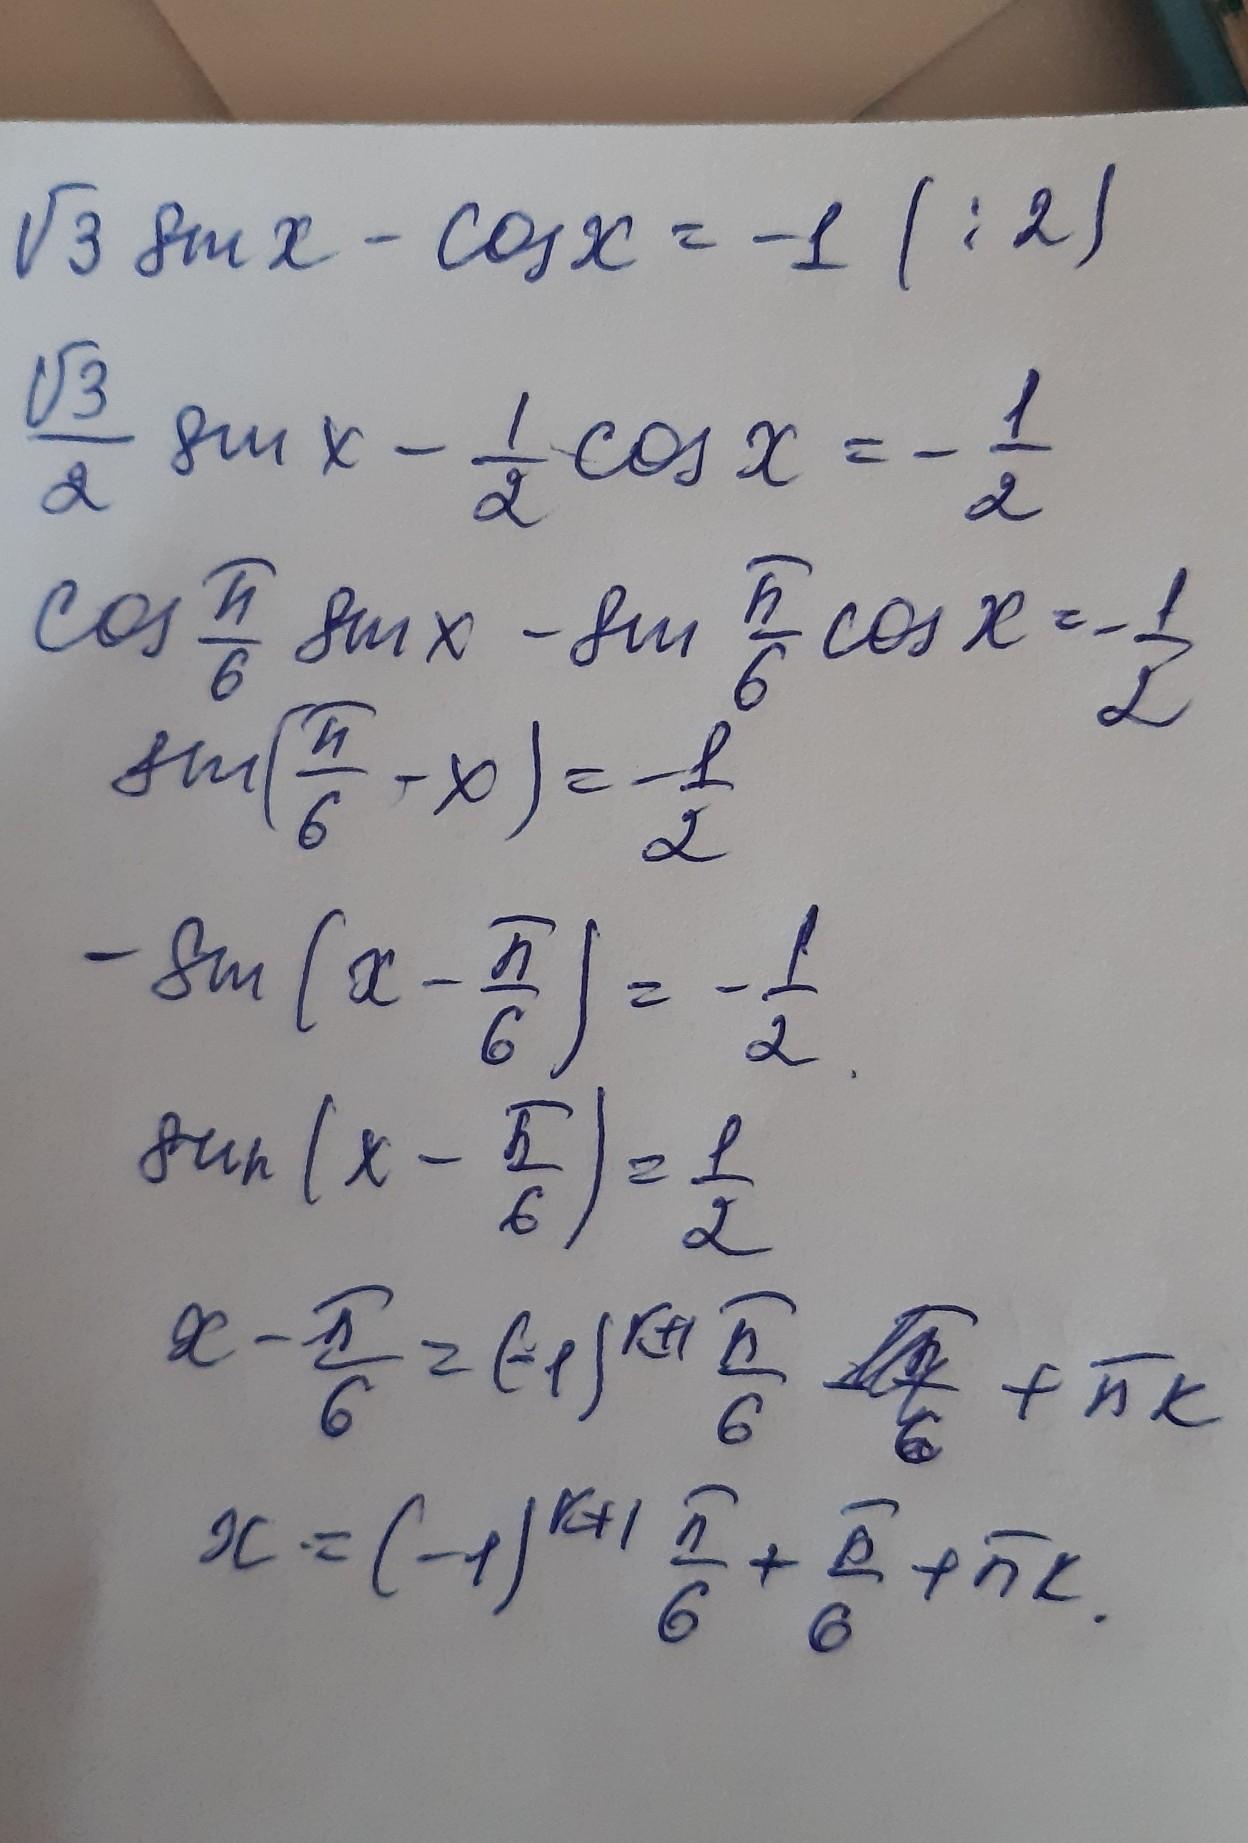 √3 sin x - cos x = -1 (: 2)
√3/2 sin x - 1/2 cos x = - 1/2
cos π/6 sin x - sin π/6 cos x = - 1/2
sin(π/6 - x) = - 1/2
- sin(x - π/6) = - 1/2.
sin(x - π/6) = 1/2
x - π/6 = (-1)^k+1 π/6 + πk
x = (-1)^k+1 π/6 + π/6 + πk.